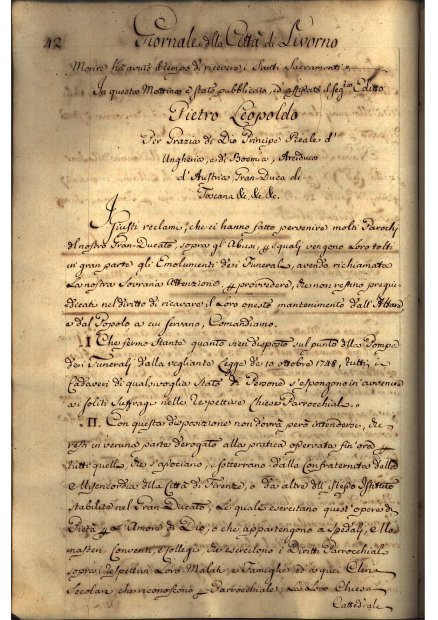 42 Giornale della Città di Livorno
Morire ha avuto il tempo di ricevere i Santi Saccamenti.
In questa Mattina è stato pubblicato, ed affissato il seg.te Editto
Pietro Leopoldo
Per Grazia di Dio Principe Reale d'
Ungheria, e di Boemia, Arciduca
d'Austria, Gran-Duca di
Toscana &c. &c. &c.
I Giusti reclami, che ci hanno fatto pervenire molti Parochj
del nostro Gran-Ducato, sopra gl'Abusi, p. i quali vengono Loro tolti
in gran parte gli Emolumenti dei Funerali, avendo richiamata
La nostra Sovrana Attenzione, p. provvedere, che non restino pregiu-
dicati nel diritto di ricavare il Loro onesto mantenimento dall'Altare,
e dal Popolo a cui servano, Comandiamo.
I. Che fermo stante quanto vien disposto sul punto della Pompa
dei Funerali dalla vegliante Legge de' 10 ottobre 1748, tutti i
Cadaveri di qualsivoglia Stato di Persone s'espongono in avvenire
a i soliti Suffragj nelle Respettive Chiese Parrocchiali.
II. Con questa disposizione non dovrà però intendersi, che
resti in veruna parte derogato alla pratica osservata fin'ora p.
tutti quelli, che s'associano, e sotterrano dalla Confraternita della
Misericordia della Città di Firenze, o da altre dell'istesso Istituto
stabilite nel Gran-Ducato, Le quali esercitano quest'opere di
Pietà p. L'Amore di Dio, o che appartengono a Spedali, e Mo-
nasteri, Conventi, e Collegi che esercitono i Diritti Parrocchiali
sopra i respettivi Loro Malati, e Famiglie, ed a quei Cleri
Secolari, che riconoscono p. Parrocchiale, La Loro Chiesa
Cattedrale